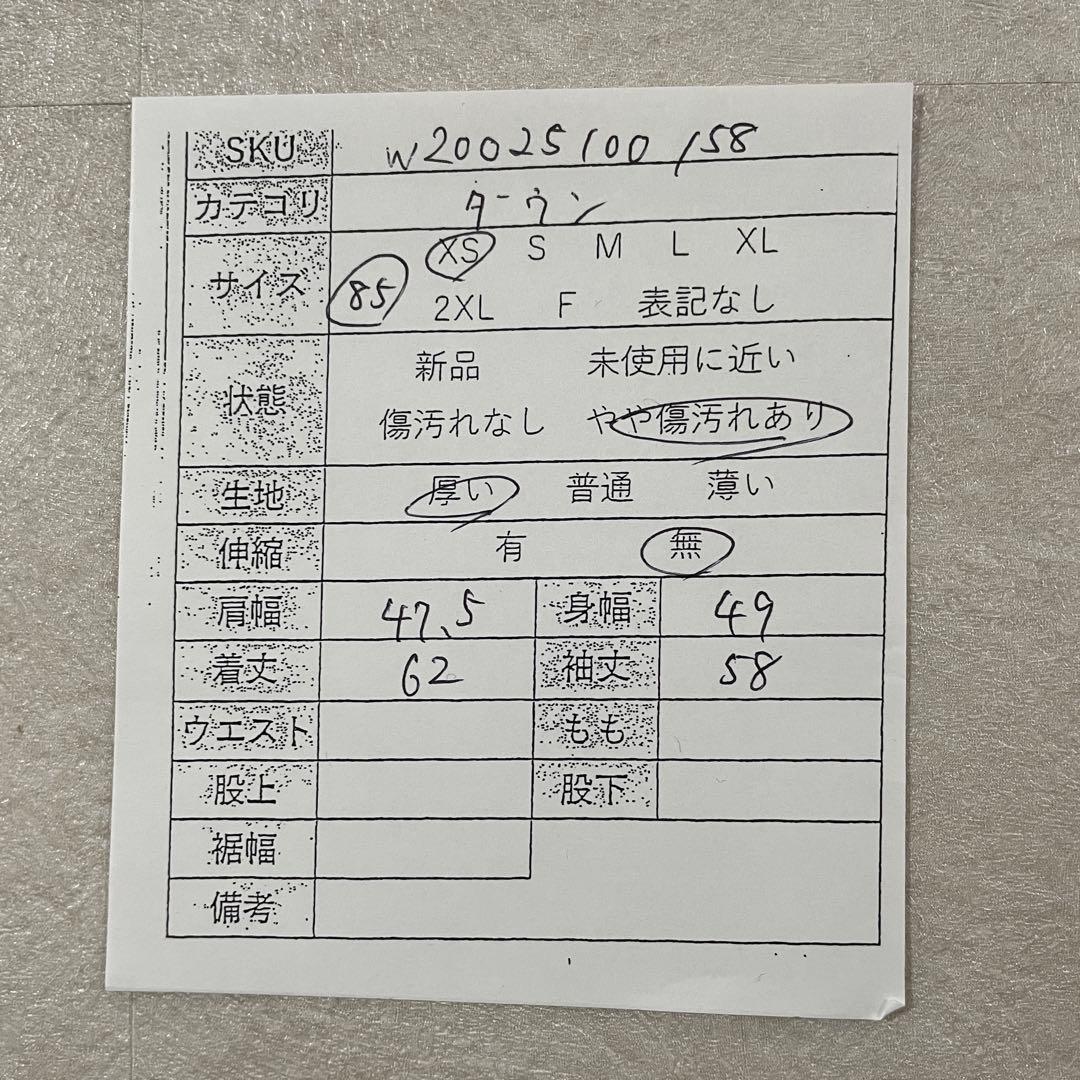 SKU W20025100158
カテゴリ ダウン
サイズ 85 XS S M L XL
2XL F 表記なし
状態 新品 未使用に近い
傷汚れなし やや傷汚れあり
生地 厚い 普通 薄い
伸縮 有 無
肩幅 47.5 身幅 49
着丈 62 袖丈 58
ウエスト もも
股上 股下
裾幅
備考